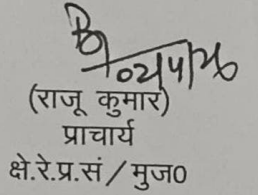 (राजू कुमार)
प्राचार्य
क्षे.रे.प्र.सं / मुज०